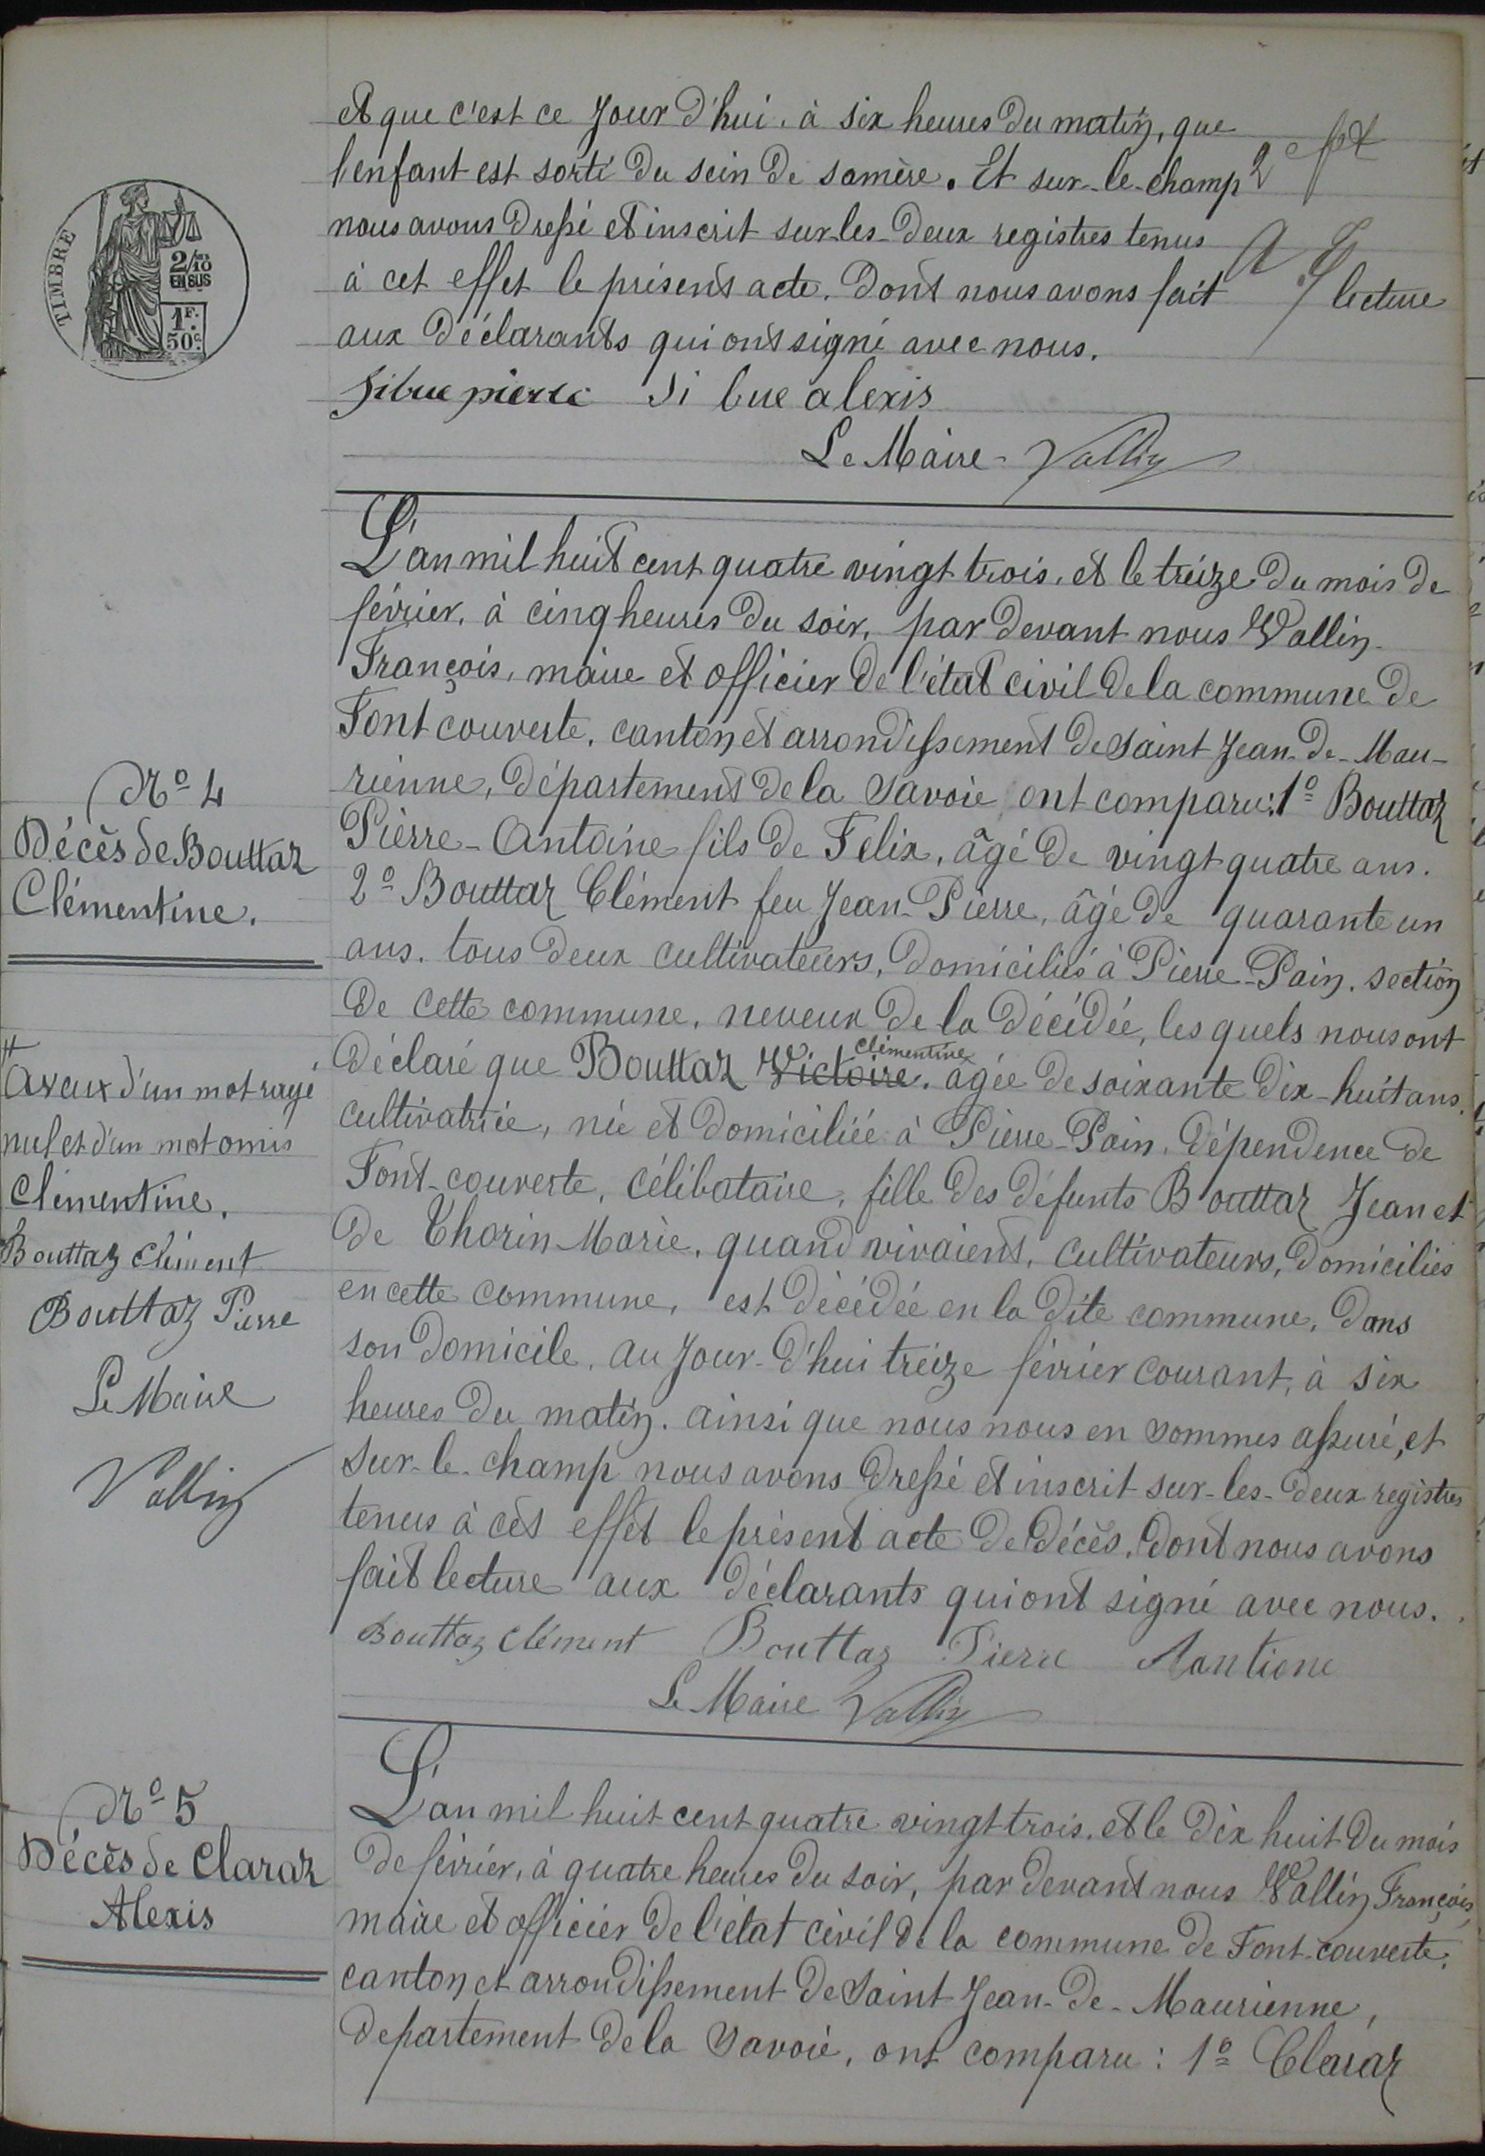 TIMBRE
2/10
EN SUS
1F.
50c.
et que c'est ce jour d'hui, à six heures du matin, que
l'enfant est sorti du sein de samère. Et sur-le-champ
nous avons dressé et inscrit sur les deux registres tenus
à cet effet le présent acte. Dont nous avons fait lecture
aux déclarants qui ont signé avec nous.
Sibue pierre Si bue alexis
Le Maire Vallin
L'an mil huit cent quatre vingt trois, et le treize du mois de
février, à cinq heures du soir, par devant nous Vallin
François, maire et officier de l'état civil de la commune de
Font couverte, canton et arrondissement de Saint Jean-de-Mau-
rienne, département de la Savoie, ont comparu: 1º Bouttaz
Pierre-Antoine fils de Felix, âgé de vingt quatre ans.
2º Bouttaz Clément feu Jean-Pierre, âgé de quarante un
ans. tous deux cultivateurs, domiciliés à Pierre-Pain, section
de cette commune, neveux de la décédée, les quels nous ont
déclaré que Bouttaz Victoire Clémentine, âgée de soixante dix-huit ans,
cultivatrice, née et domiciliée à Pierre-Pain, dépendence de
Font-couverte, célibataire, fille des défunts Bouttaz Jean et
de Thorin Marie, quand vivaient, cultivateurs, domiciliés
en cette commune, est décédée en la dite commune, dans
son domicile, au jour-d'hui treize février courant, à six
heures du matin, ainsi que nous nous en sommes assuré, et
sur-le-champ nous avons dressé et inscrit sur-les-deux registres
tenus à cet effet le présent acte de décès, dont nous avons
fait lecture aux déclarants qui ont signé avec nous.
Bouttaz Clément Bouttaz Pierre Aantione
Le Maire Vallin
Nº 4
Décès de Bouttaz
Clémentine.
Aveux d'un mot rayé
nul et d'un mot omis
Clémentine.
Bouttaz Clément
Bouttaz Pierre
Le Maire
Vallin
Nº 5
Décès de Claraz
Alexis
L'an mil huit cent quatre vingt trois, et le dix huit du mois
de février, à quatre heures du soir, par devant nous Vallin François,
maire et officier de l'état civil de la commune de Font-couverte,
canton et arrondissement de Saint Jean-de-Maurienne,
departement de la Savoie, ont comparu: 1º Claraz